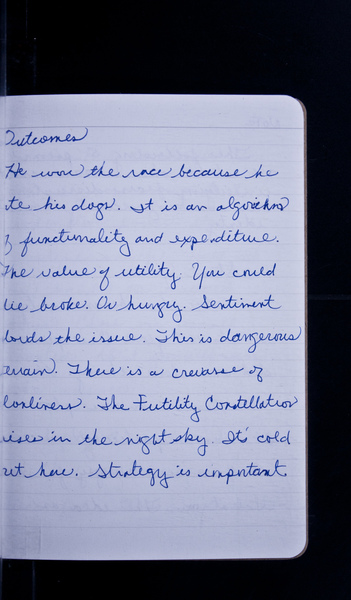 Outcomes
He won the race because he
ate his dogs. It is an algorithm
of functionality and expenditure.
The value of utility. You could
be broke. Or hungry. Sentiment
clouds the issue. This is dangerous
terrain. There is a crevasse of
lonliness. The Futility Constellation
rises in the night sky. It's cold
out here. Strategy is important